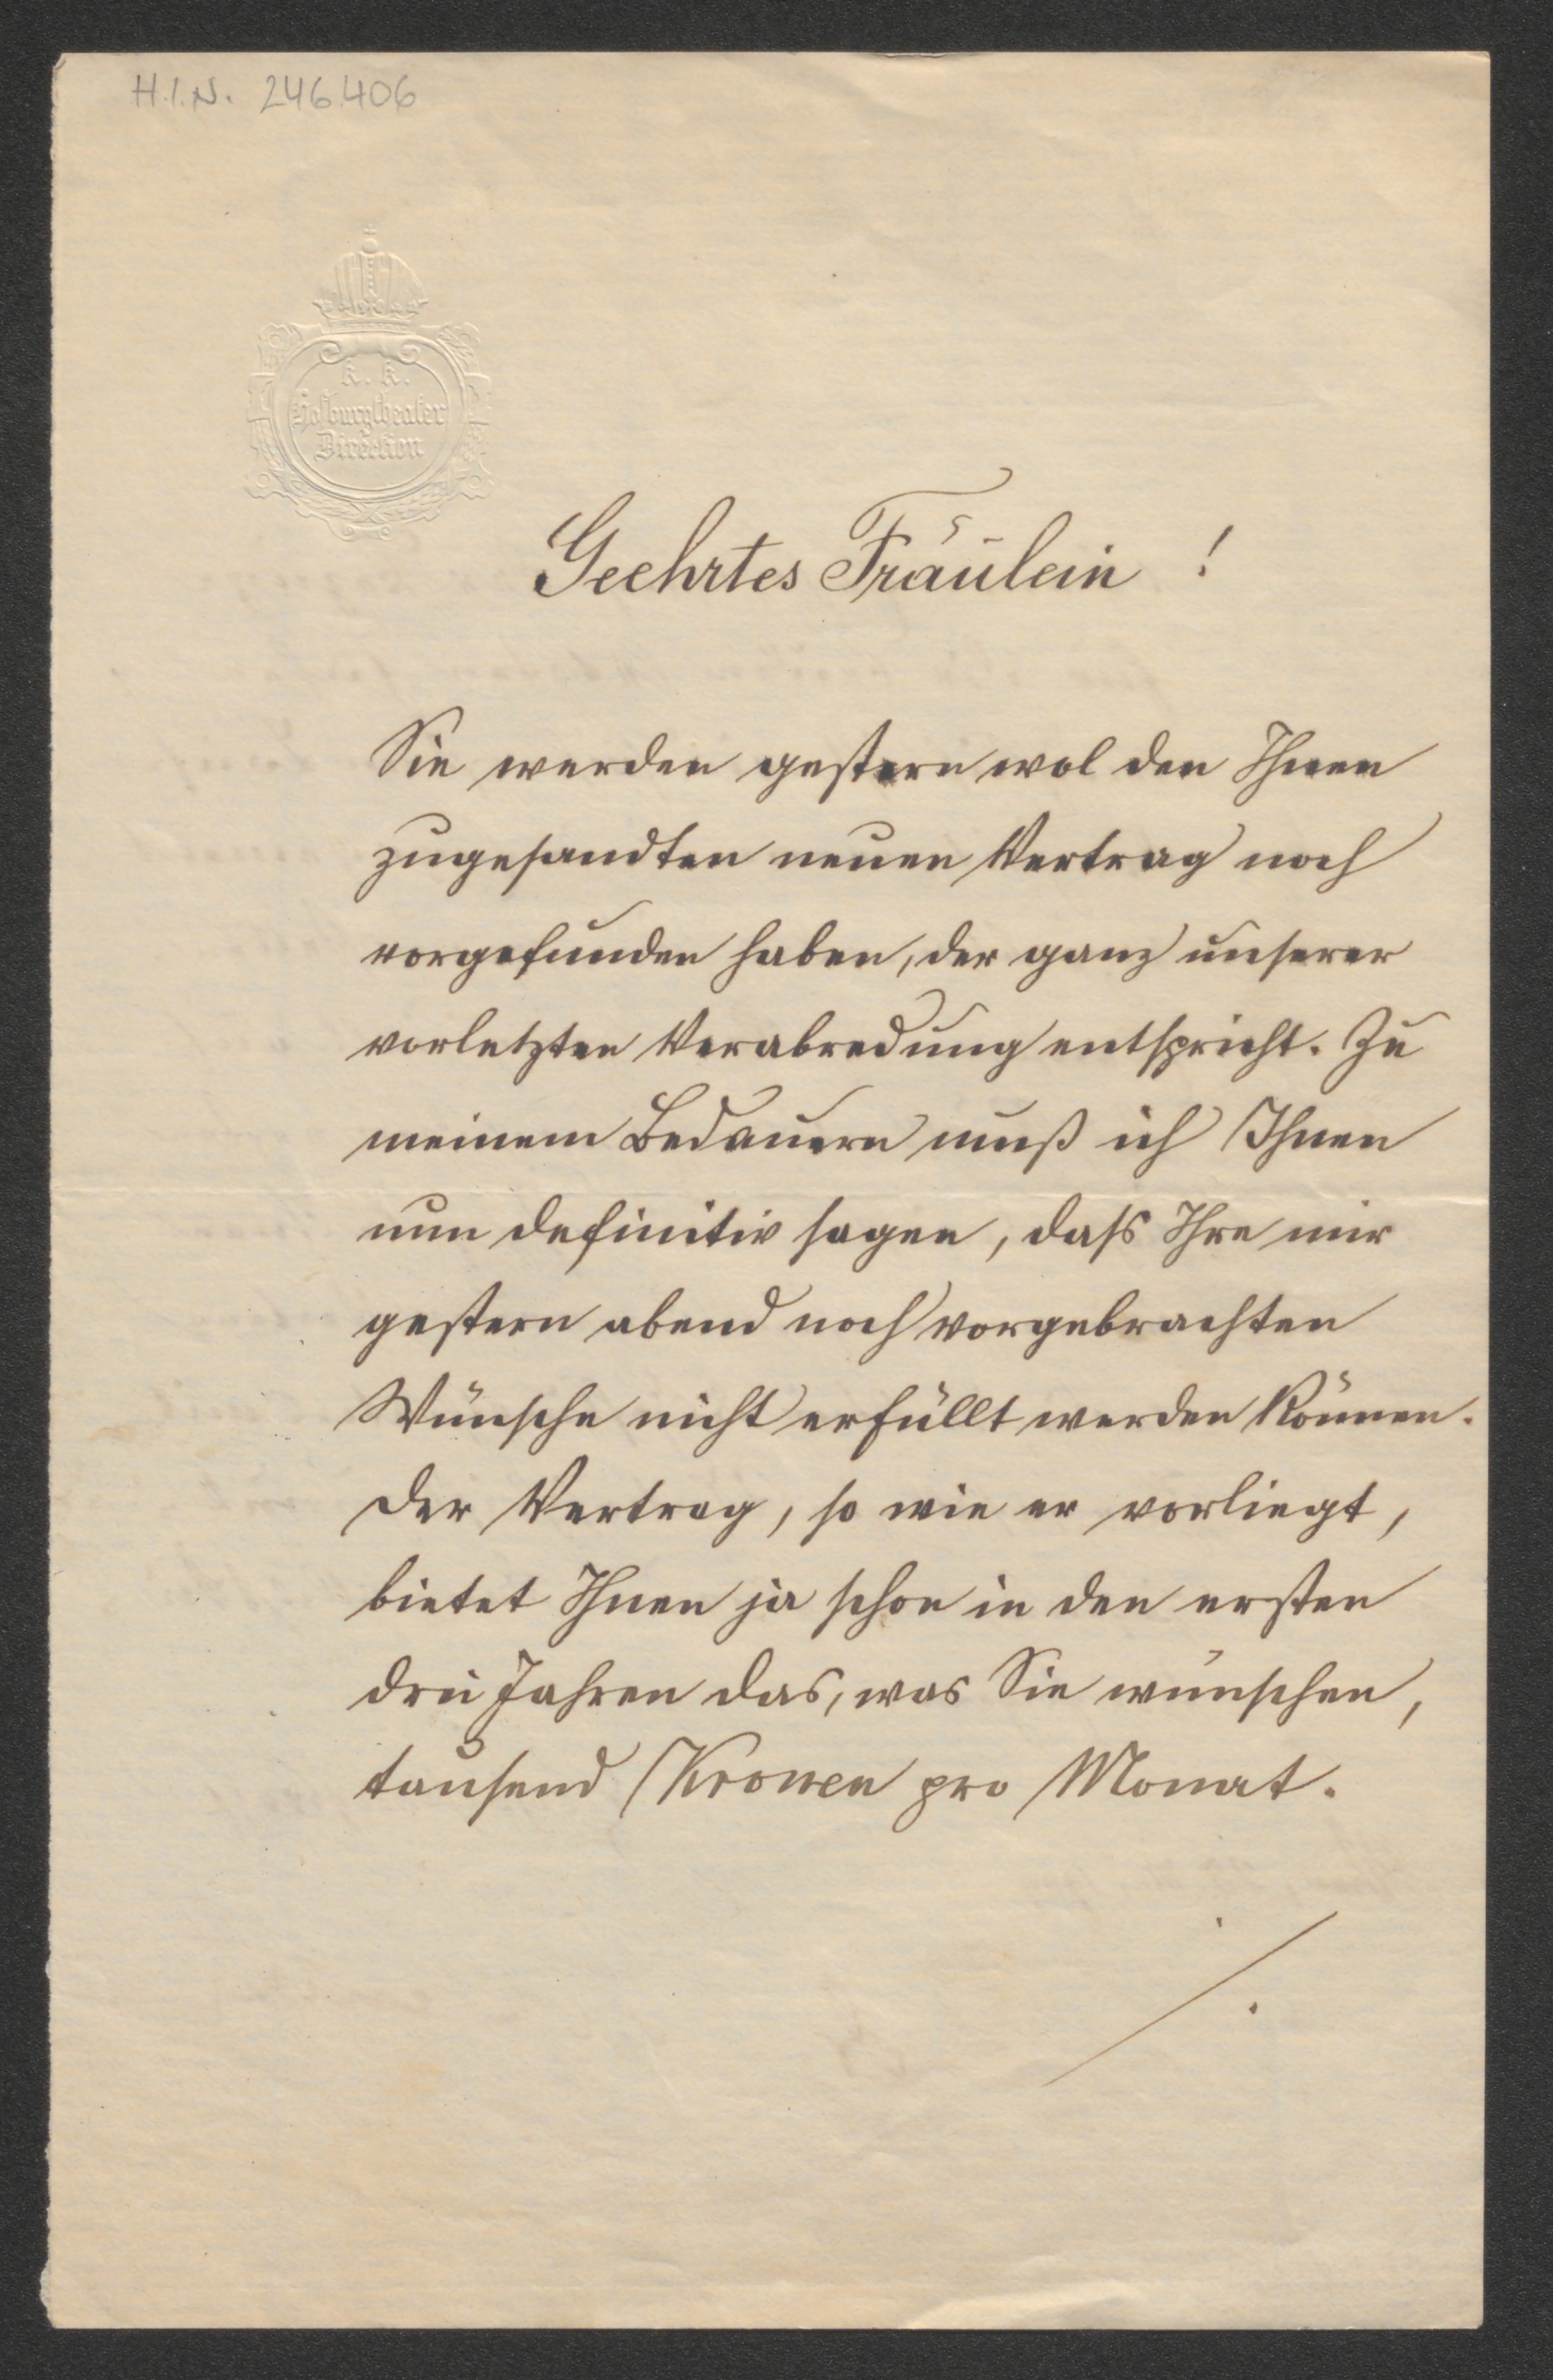 H.I.N. 246.406
K. K.
Hofburgtheater
Direction
Geehrtes Fräulein !
Sie werden gestern wol den Ihnen
zugesandten neuen Vertrag noch
vorgefunden haben, der ganz unserer
vorletzten Verabredung entspricht. Zu
meinem Bedauern muß ich Ihnen
nun definitiv sagen, dass Ihre mir
gestern abend noch vorgebrachten
Wünsche nicht erfüllt werden können.
Der Vertrag, so wie er vorliegt,
bietet Ihnen ja schon in den ersten
drei Jahren das, was Sie wünschen,
tausend Kronen pro Monat.
./.